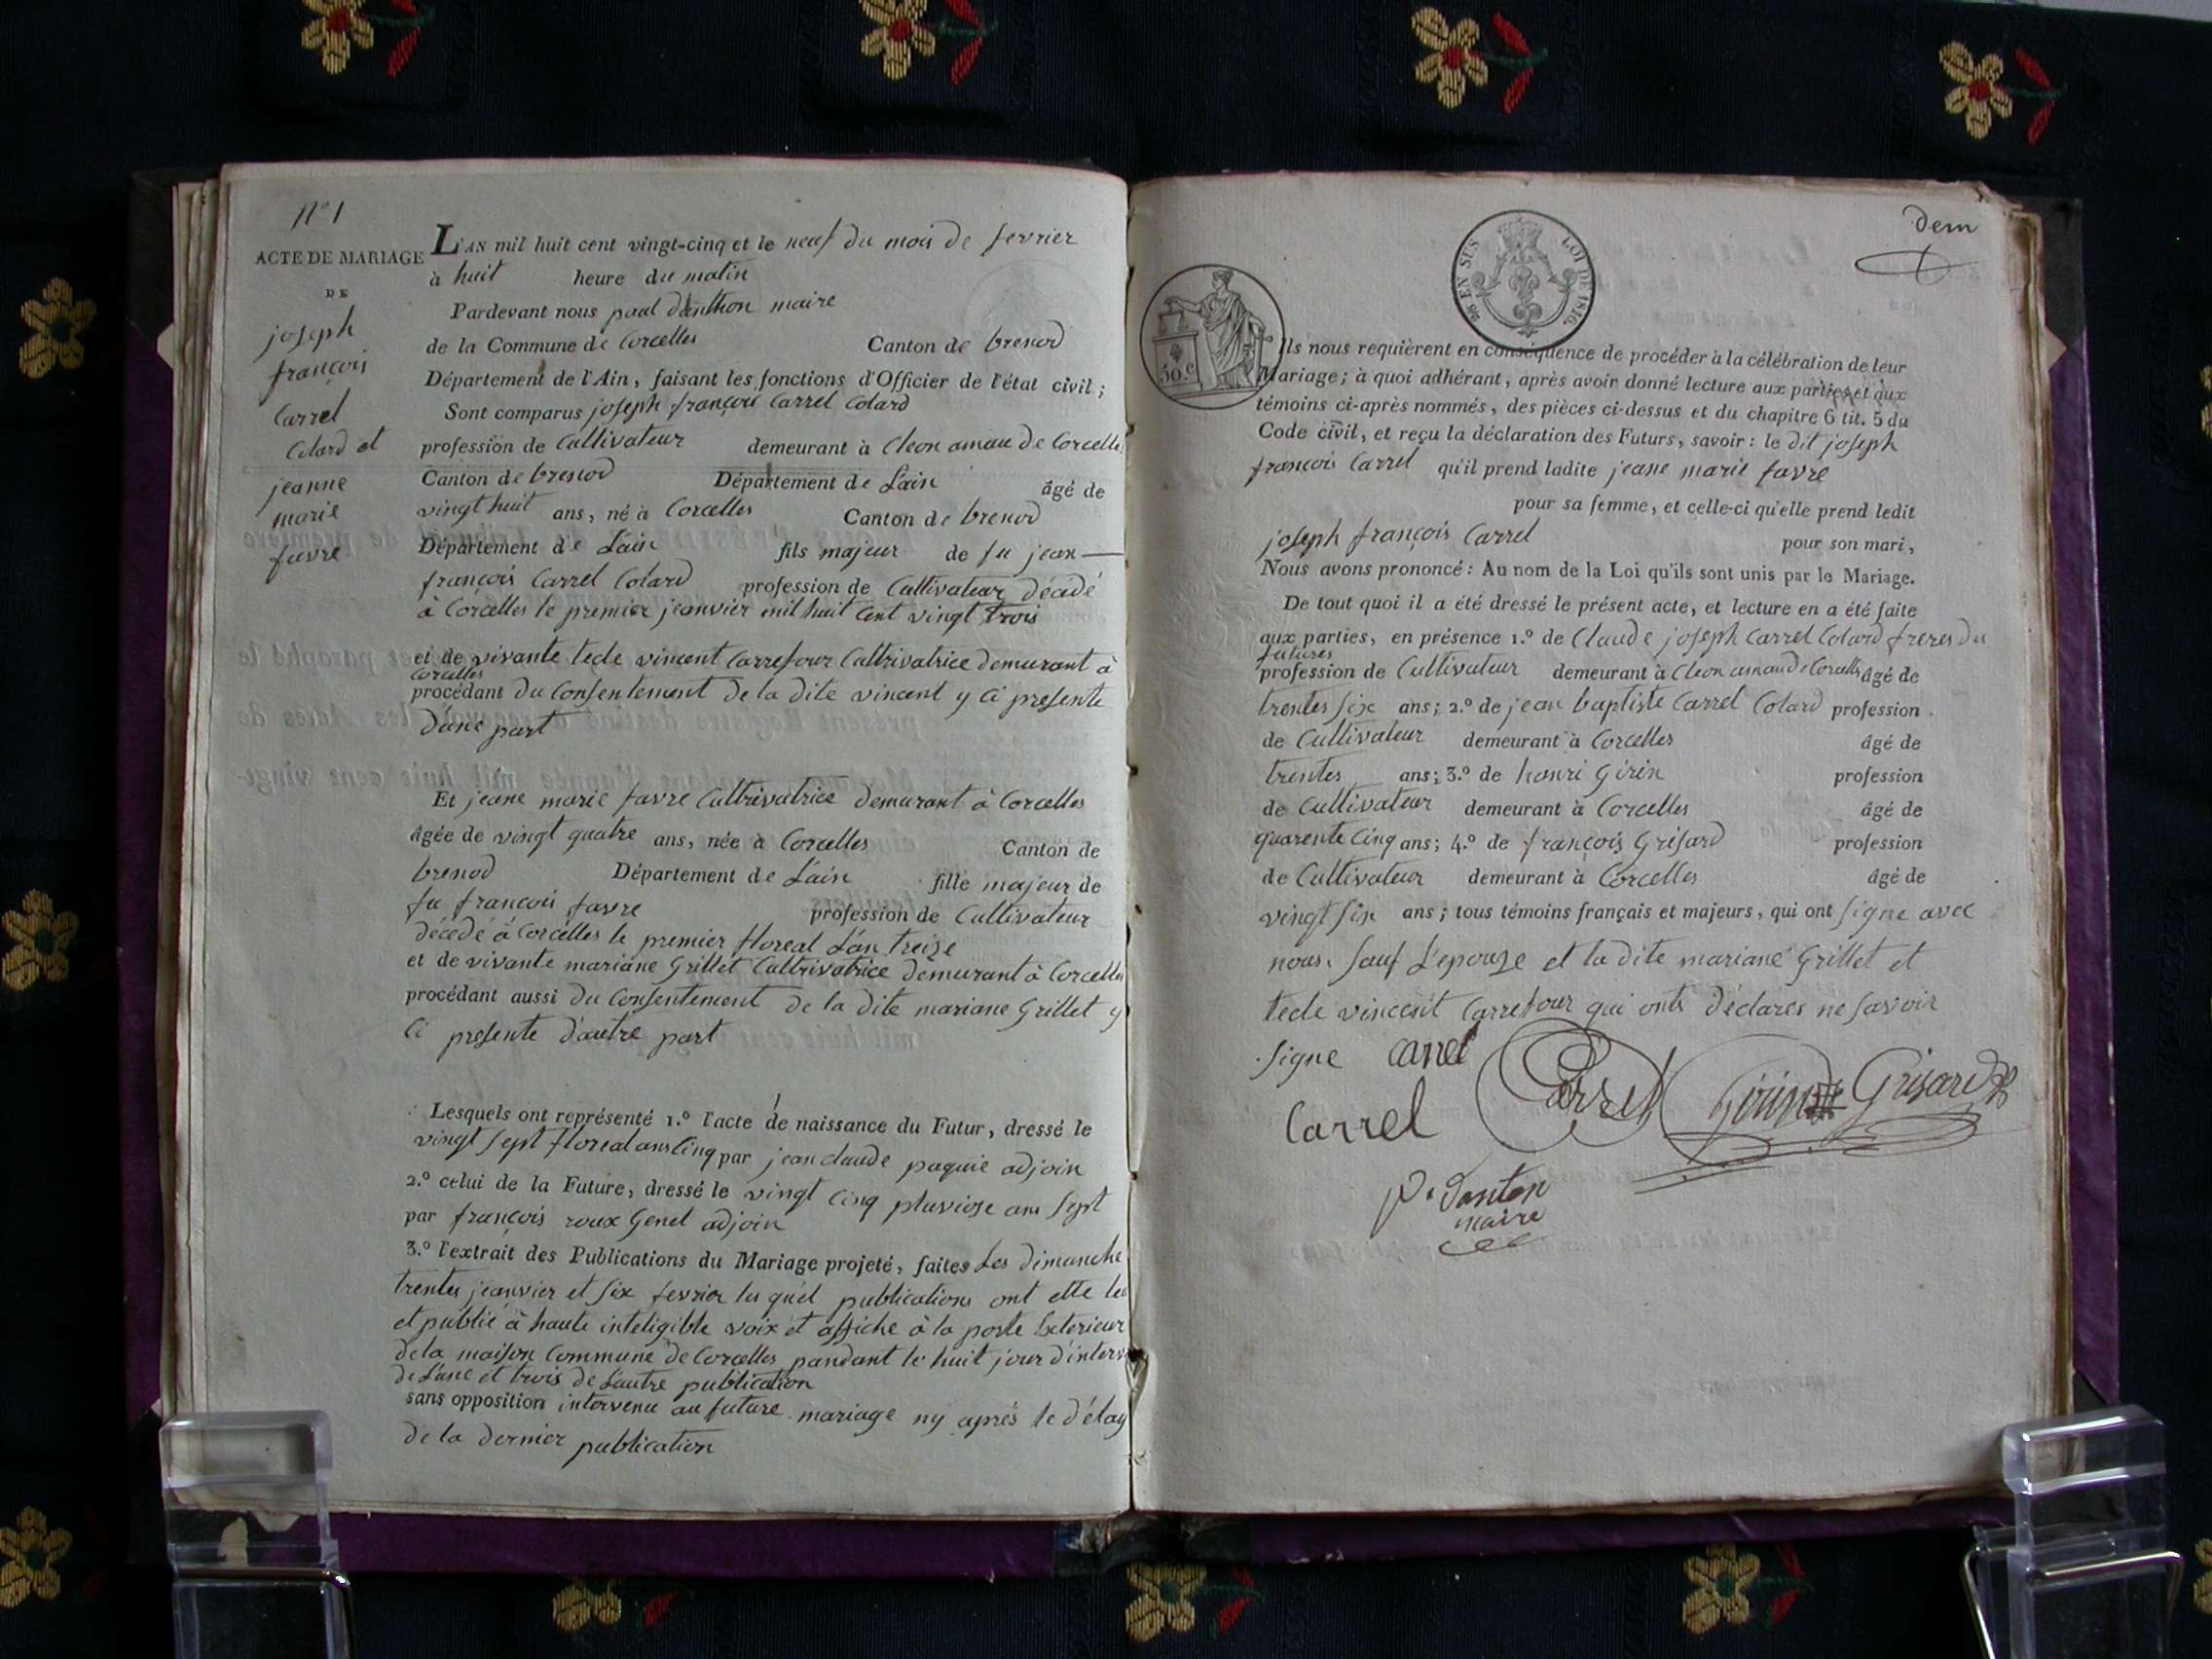 N° 1
ACTE DE MARIAGE
DE
joseph
françois
Carrel
Colard et
jeanne
marie
favre
L'AN mil huit cent vingt-cinq et le neuf du mois de fevrier
à huit heure du matin
Pardevant nous paul Danthon maire
de la Commune de Corcelles Canton de brenod
Département de l'Ain, faisant les fonctions d'Officier de l'état civil;
Sont comparus joseph françois Carrel Colard
profession de Cultivateur demeurant à Cleon de Corcelles
Canton de brenod Département de Lain âgé de
vingt huit ans, né à Corcelles Canton de brenod
Département de Lain fils majeur de fu jean
françois Carrel Colard profession de Cultivateur décédé
à Corcelles le premier jeanvier mil huit Cent vingt trois
et de vivante tecle vincent Carrefour Cultrivatrice demurant à
corcelles
procédant du Consentement de la dite vincent y Ci presente
d'une part
Et jeane marie favre Cultrivatrice demurant à Corcelles
âgée de vingt quatre ans, née à Corcelles Canton de
brenod Département de Lain fille majeur de
fu françois favre profession de Cultivateur
décédé à Corcelles le premier floreal L'an treize
et de vivante mariane Grillet Cultrivatrice demurant à Corcelles
procédant aussi du Consentement de la dite mariane Grillet y
Ci presente d'autre part
Lesquels ont représenté 1.° l'acte de naissance du Futur, dressé le
vingt sept floreal ans Cinq par jean claude paquie adjoin
2.° celui de la Future, dressé le vingt Cinq pluviose ans sept
par françois roux Genel adjoin
3.° l'extrait des Publications du Mariage projeté, faites Les dimanche
trentes jeanvier et six fevrier les quel publications ont ette
et publié à haute inteligible voix et affiche à la porte Exterieur
de la maison Commune de Corcelles pandant le huit jour d'interv
de L'une et trois de L'autre publication
sans opposition intervenu au future mariage ny après le délay
de la dernier publication
dem
EN SUS
LOI DE 1816.
50.c
Ils nous requièrent en conséquence de procéder à la célébration de leur
Mariage; à quoi adhérant, après avoir donné lecture aux parties et aux
témoins ci-après nommés, des pièces ci-dessus et du chapitre 6 tit. 5 du
Code civil, et reçu la déclaration des Futurs, savoir: le dit joseph
françois Carrel qu'il prend ladite jeane marie favre
pour sa femme, et celle-ci qu'elle prend ledit
joseph françois Carrel pour son mari,
Nous avons prononcé: Au nom de la Loi qu'ils sont unis par le Mariage.
De tout quoi il a été dressé le présent acte, et lecture en a été faite
aux parties, en présence 1.° de Claude joseph Carrel Colard freres du
futures
profession de Cultivateur demeurant à Cleon de Corcelles âgé de
trentes six ans; 2.° de jean baptiste Carrel Colard profession
de Cultivateur demeurant à Corcelles âgé de
trentes ans; 3.° de henri Girin profession
de Cultivateur demeurant à Corcelles âgé de
quarente Cinq ans; 4.° de françois Grisard profession
de Cultivateur demeurant à Corcelles âgé de
vingt six ans; tous témoins français et majeurs, qui ont signe avec
nous. sauf L'epouze et la dite mariane Grillet et
tecle vincent Carrefour qui onts déclares ne savoir
signe Carrel Carrel Girin Grisard
Carrel
p. Danton
maire